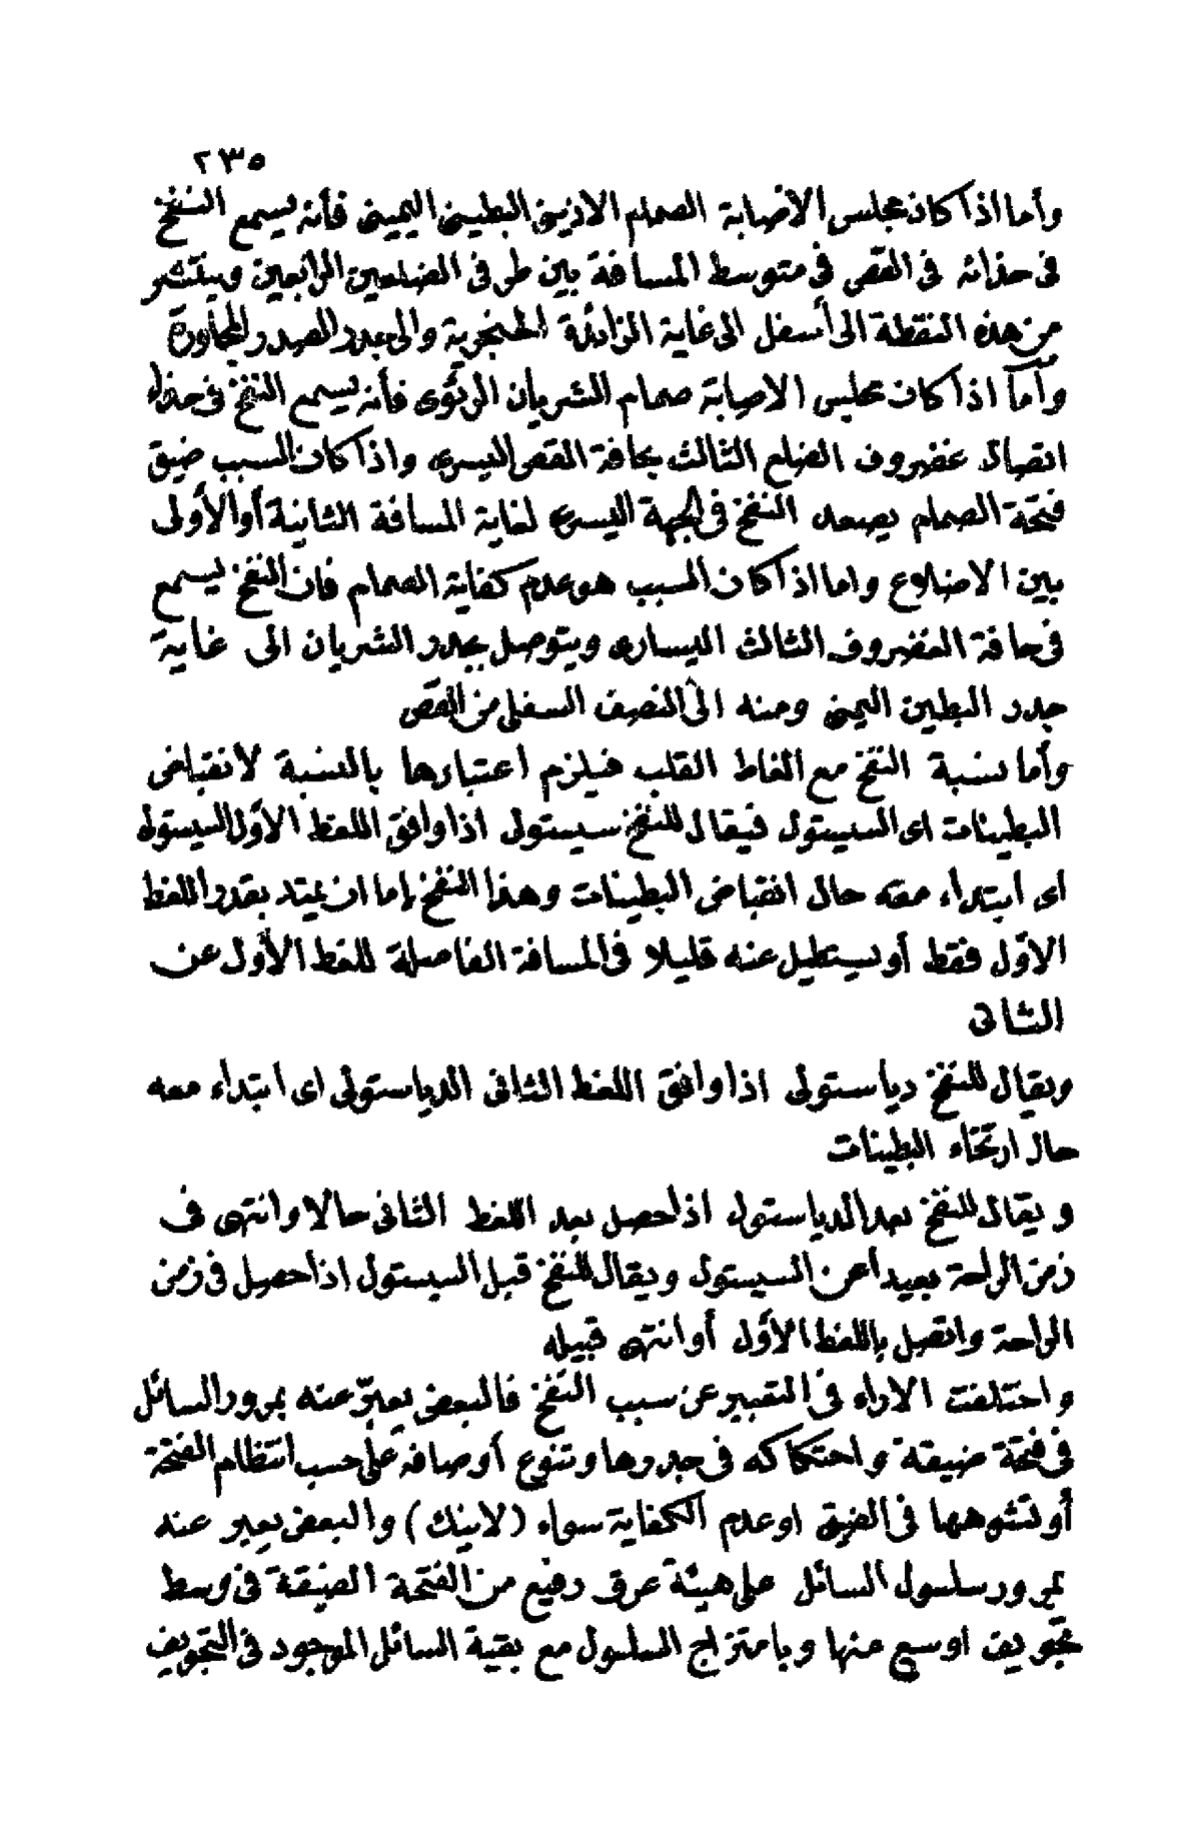 ٢٣٥
وأما اذا كان مجلس الاصابة الصمام الاذينى البطينى اليمينى فأنه يسمع النفخ
فى حذائه فى القص فى متوسط المسافة بين طرفى الضلعين الرابعين وينتشر
من هذه النقطة الى أسفل الى غاية الزائدة الخنجرية والى جدر الصدر المجاورة
وأما اذا كان مجلس الاصابة صمام الشريان الرئوى فأنه يسمع النفخ فى حذاء
اتصال غضروف الضلع الثالث بحافة القص اليسرى واذا كان السبب ضيق
فتحة الصمام يصعد النفخ فى الجهة اليسرى لغاية المسافة الثانية أو الأولى
بين الاضلاع واما اذا كان السبب هو عدم كفاية الصمام فان النفخ يسمع
فى حافة الغضروف الثالث اليسارى ويتوصل بجدر الشريان الى غاية
جدر البطين اليمنى ومنه الى النصف السفلى من القص
وأما نسبة النفخ مع الغاط القلب فيلزم اعتبارها بالنسبة لانقباض
البطينات اى السيستول فيقال للنفخ سيستولى اذا وافق اللغظ الاوّل السيستولى
اى ابتداء معه حال انقباض البطينات وهذا النفخ إما ان يمتد بقدر اللغط
الاوّل فقط أو يستطيل عنه قليلا فى المسافة الفاصلة للغط الأول عن
الثانى
ويقال للنفخ دياستولى اذا وافق اللغط الثانى الدياستولى اى ابتداء معه
حال ارتخاء البطينات
ويقال للنفخ بعد الدياستولى اذا حصل بعد اللغط الثانى حالا وانتهى فى
زمن الراحة بعيدا عن السيستول ويقال للنفخ قبل السيستول اذا حصل فى زمن
الراحة واتصل باللغط الأول أو انتهى قبيله
واختلفت الاراء فى التعبير عن سبب النفخ فالبعض يعبّر عنه بمرور السائل
فى فتحة ضيقة واحتكاكه فى جدرها وتنوع أوصافه على حسب انتظام الفتحة
أو تشوهها فى الضيق او عدم الكفاية سواء (لاينك) والبعض يعبر عنه
بمرور سلسول السائل على هيئة عرق رفيع من الفتحة الضيقة فى وسط
تجويف اوسع منها وبامتزاج السلسول مع بقية السائل الموجود فى التجويف